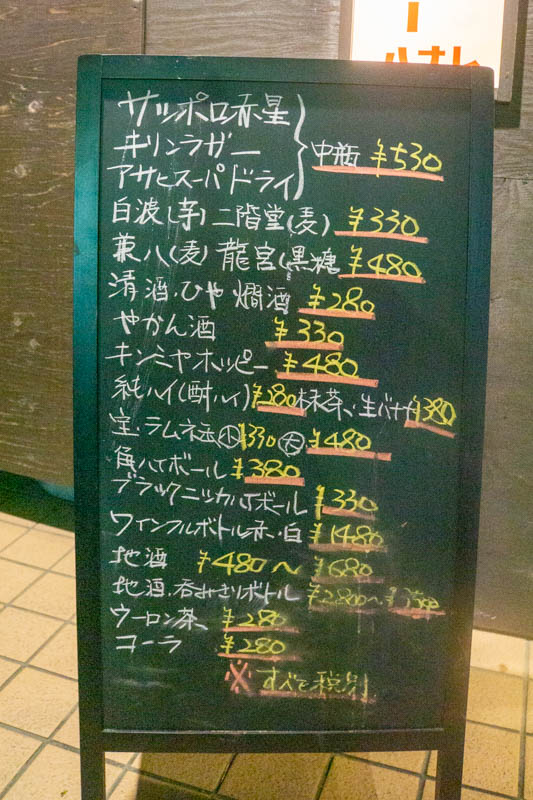 サッポロ赤星
キリンラガー
アサヒスーパードライ
中瓶 ¥530
白波(芋) 二階堂(麦) ¥330
兼八(麦) 龍宮(黒糖 ¥480
清酒・ひや 燗酒 ¥280
やかん酒 ¥330
キンミヤホッピー ¥480
純ハイ(酎ハイ) ¥280 抹茶、生バナナ ¥380
宝・ラムネ玉 小 ¥330 大 ¥480
角ハイボール ¥380
ブラックニッカハイボール ¥330
ワインフルボトル赤・白 ¥1480
地酒 ¥480〜 ¥680
地酒・呑みきりボトル ¥2800〜
ウーロン茶、 ¥280
コーラ ¥280
※すべて税別